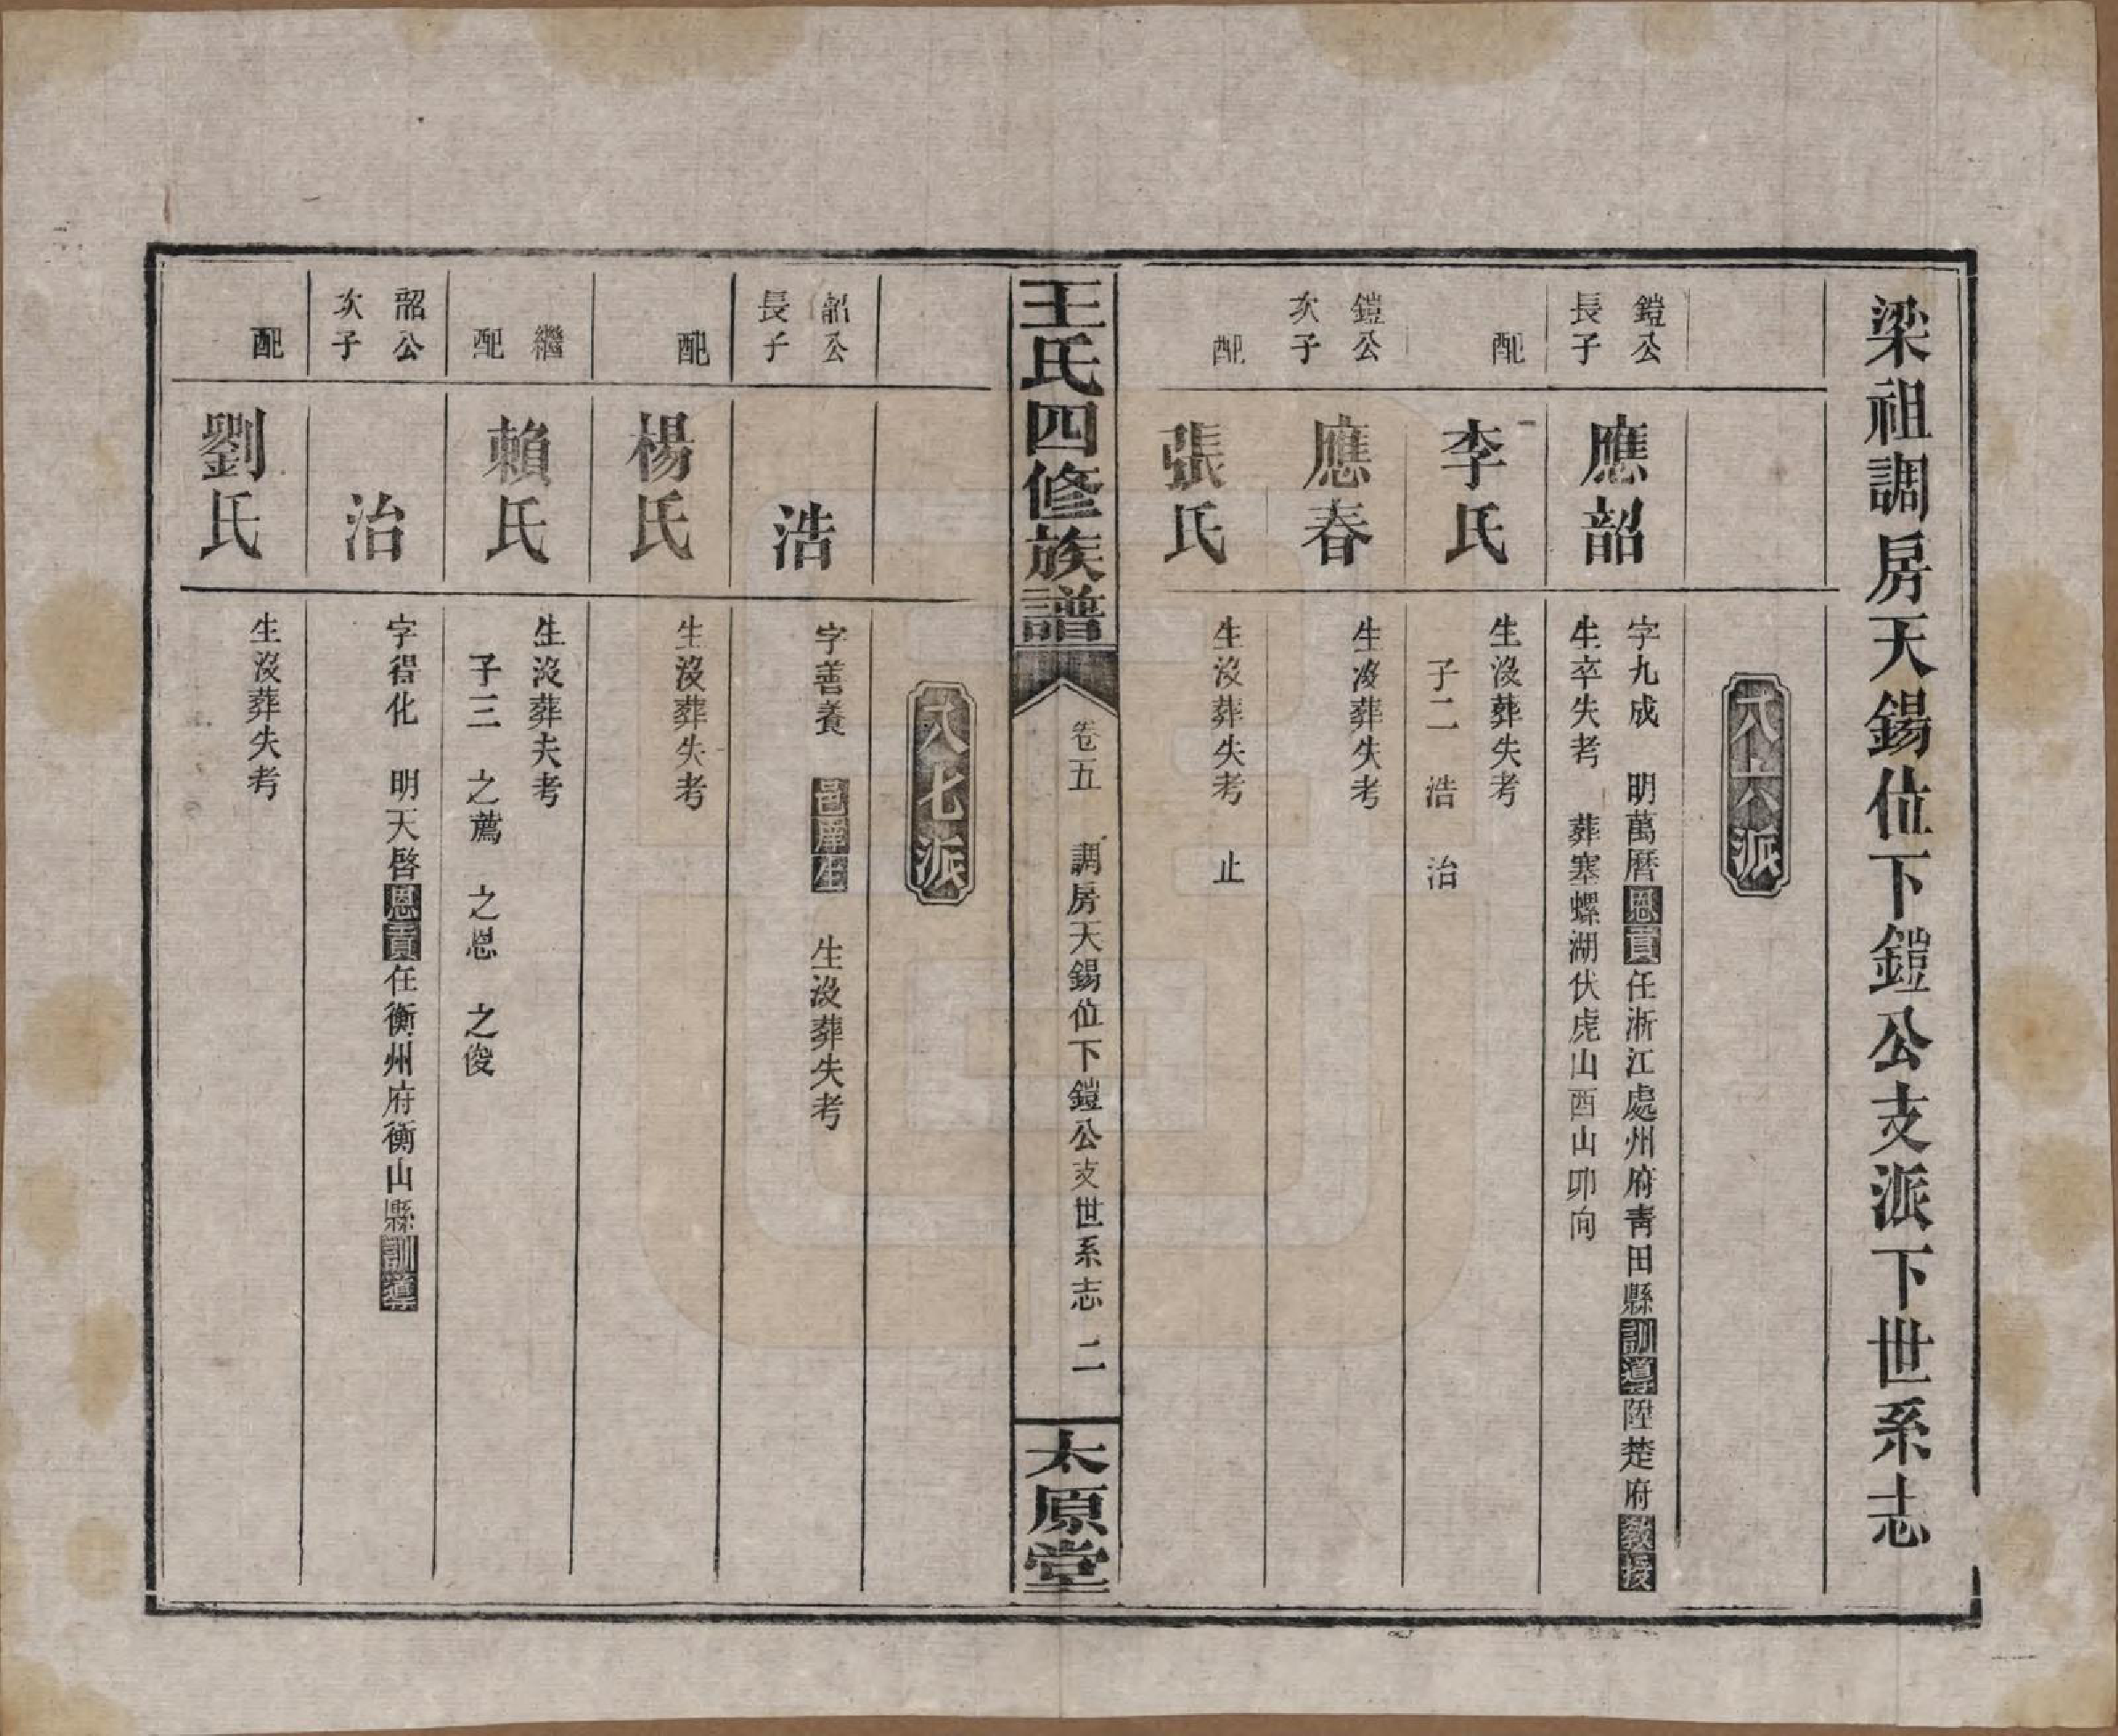 梁祖調房天錫位下鎧公支派下世系志
八六派
鎧公
長子
應韶
字九成 明萬曆恩貢任浙江處州府青田縣訓導陞楚府教授
生卒失考 葬塞螺湖伏虎山酉山卯向
配
李氏
生沒葬失考
子二 浩 治
鎧公
次子
應春
生沒葬失考
配
張氏
生沒葬失考 止
王氏四修族譜
卷五 調房天錫位下鎧公支世系志 二
太原堂
八七派
韶公
長子
浩
字善養 邑庠生 生沒葬失考
配
楊氏
生沒葬失考
繼
配
賴氏
生沒葬失考
子三 之薦 之恩 之俊
韶公
次子
治
字得化 明天啓恩貢任衡州府衡山縣訓導
配
劉氏
生沒葬失考